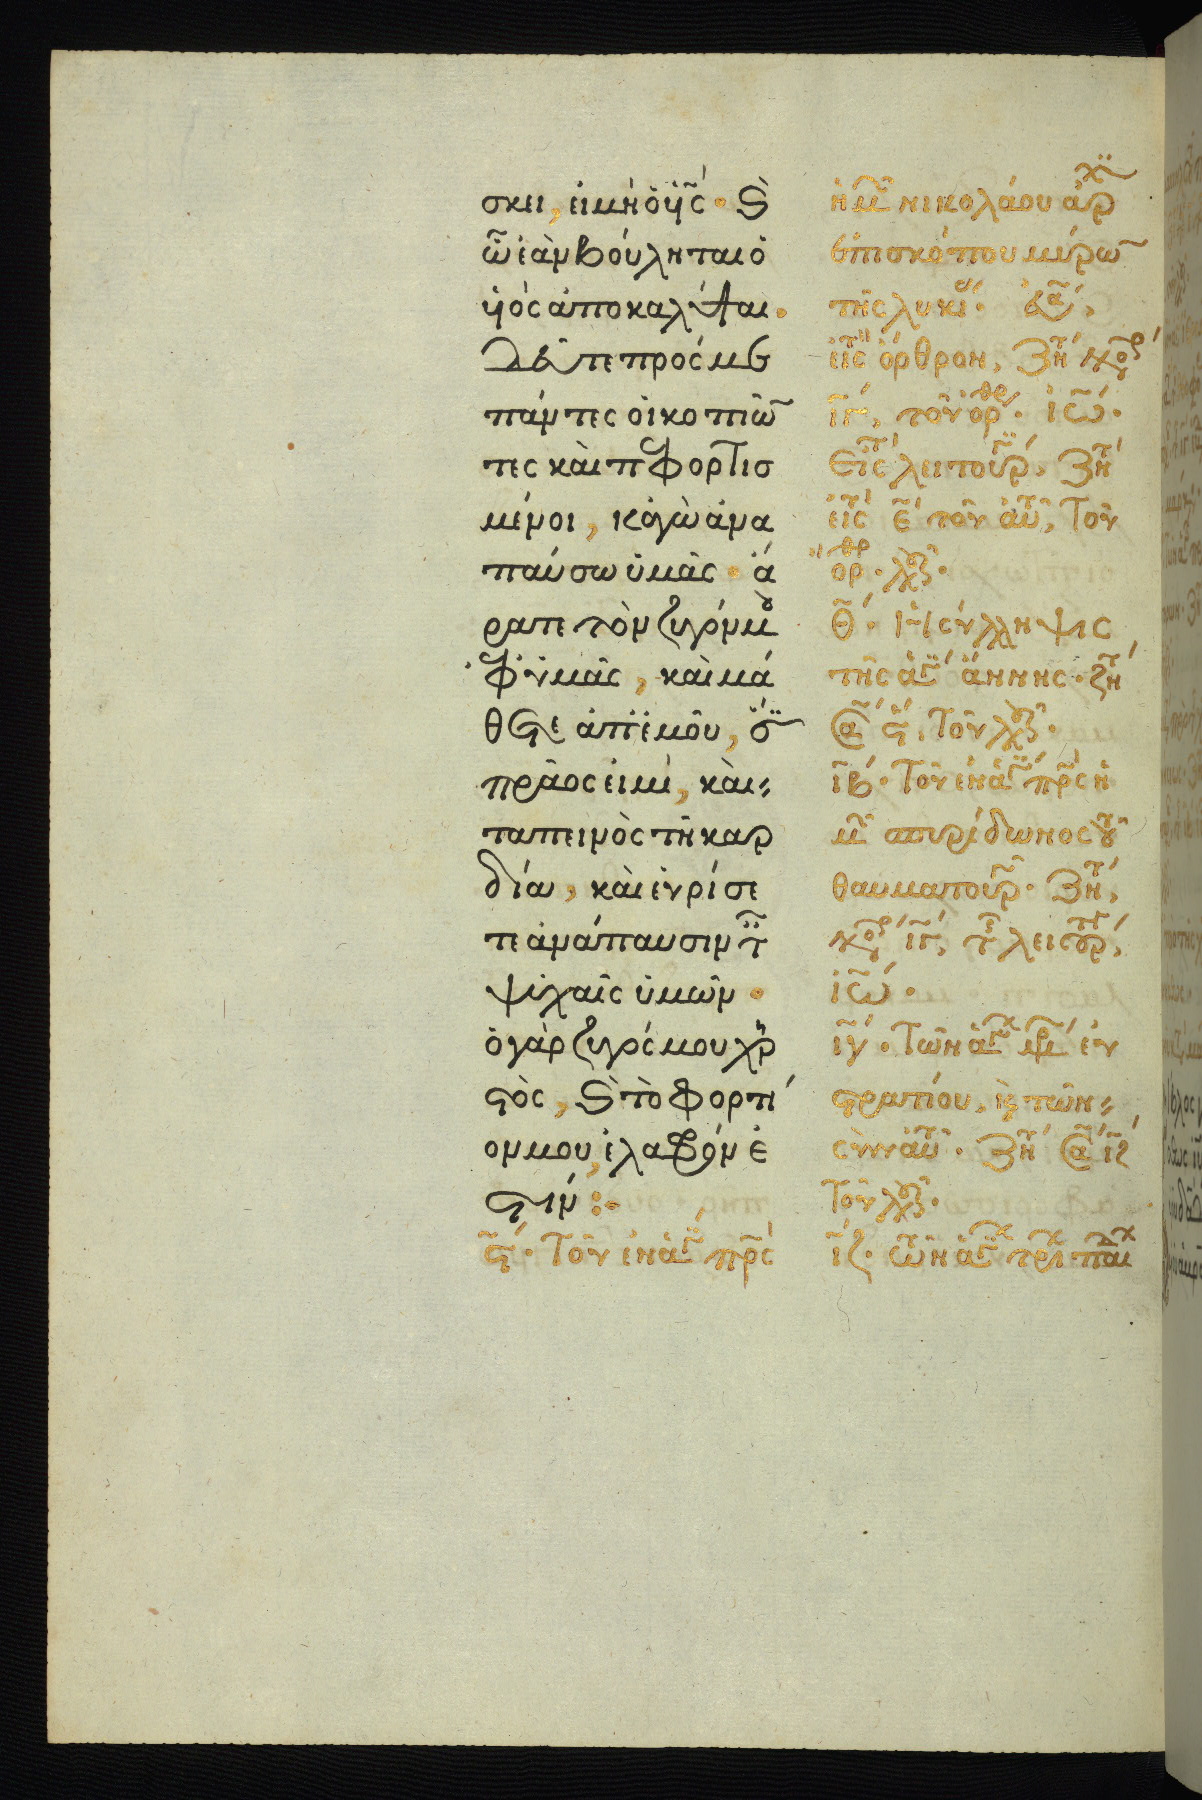 σκει, εἰ μὴ ὁ υἱς· καὶ
ὧ ἐὰν βούληται ὁ
υἱὸς ἀποκαλύψαι.
Δεῦτε πρός με
πάντες οἱ κοπιῶ
τες καὶ πεφορτισ
μένοι, κἀγὼ ἀνα
παύσω ὑμᾶς· ἄ
ρατε τὸν ζυγόν μου
ἐφ ὑμᾶς, καὶ μά
θετε ἀπ ἐμοῦ, ὅτι
πρᾶος εἰμὶ, καὶ
ταπεινὸς τῆ καρ
δία, καὶ εὑρήσε
τε ἀνάπαυσιν τ
ψυχαῖς ὑμῶν·
ὁ γὰρ ζυγός μου χρη
στὸς, καὶ τὸ φορτί
ον μου, ἐλαφρόν ἐ
στιν:
ς· Τοῦ ἐν ἁγ πρς
ἡμ νικολάου ἀρχ
ἐπισκόπου μύρω
τῆς λυκί·
εἰς ὄρθρον, Ζητ
τοῦ ὄρθ· ἰω·
Εἰς λειτουργ, Ζητ
εἰς τοῦ αὐτ, Τοῦ
ὄρθ·
θ· Ἡ σύλληψις
τῆς ἁγ ἄννης· ζητ
Τοῦ
ιβ· Τοῦ ἐν ἁγ πρς ἡ
μ σπυρίδωνος τοῦ
θαυματουργ· Ζητ,
λειτουργ,
ἰω·
ιγ· Τῶν ἁγ μαρ εὐ
στρατίου, καὶ τῶν
σὺν αὐτ· Ζητ
Τοῦ
ιζ· Τῶν ἁγ τρι παι